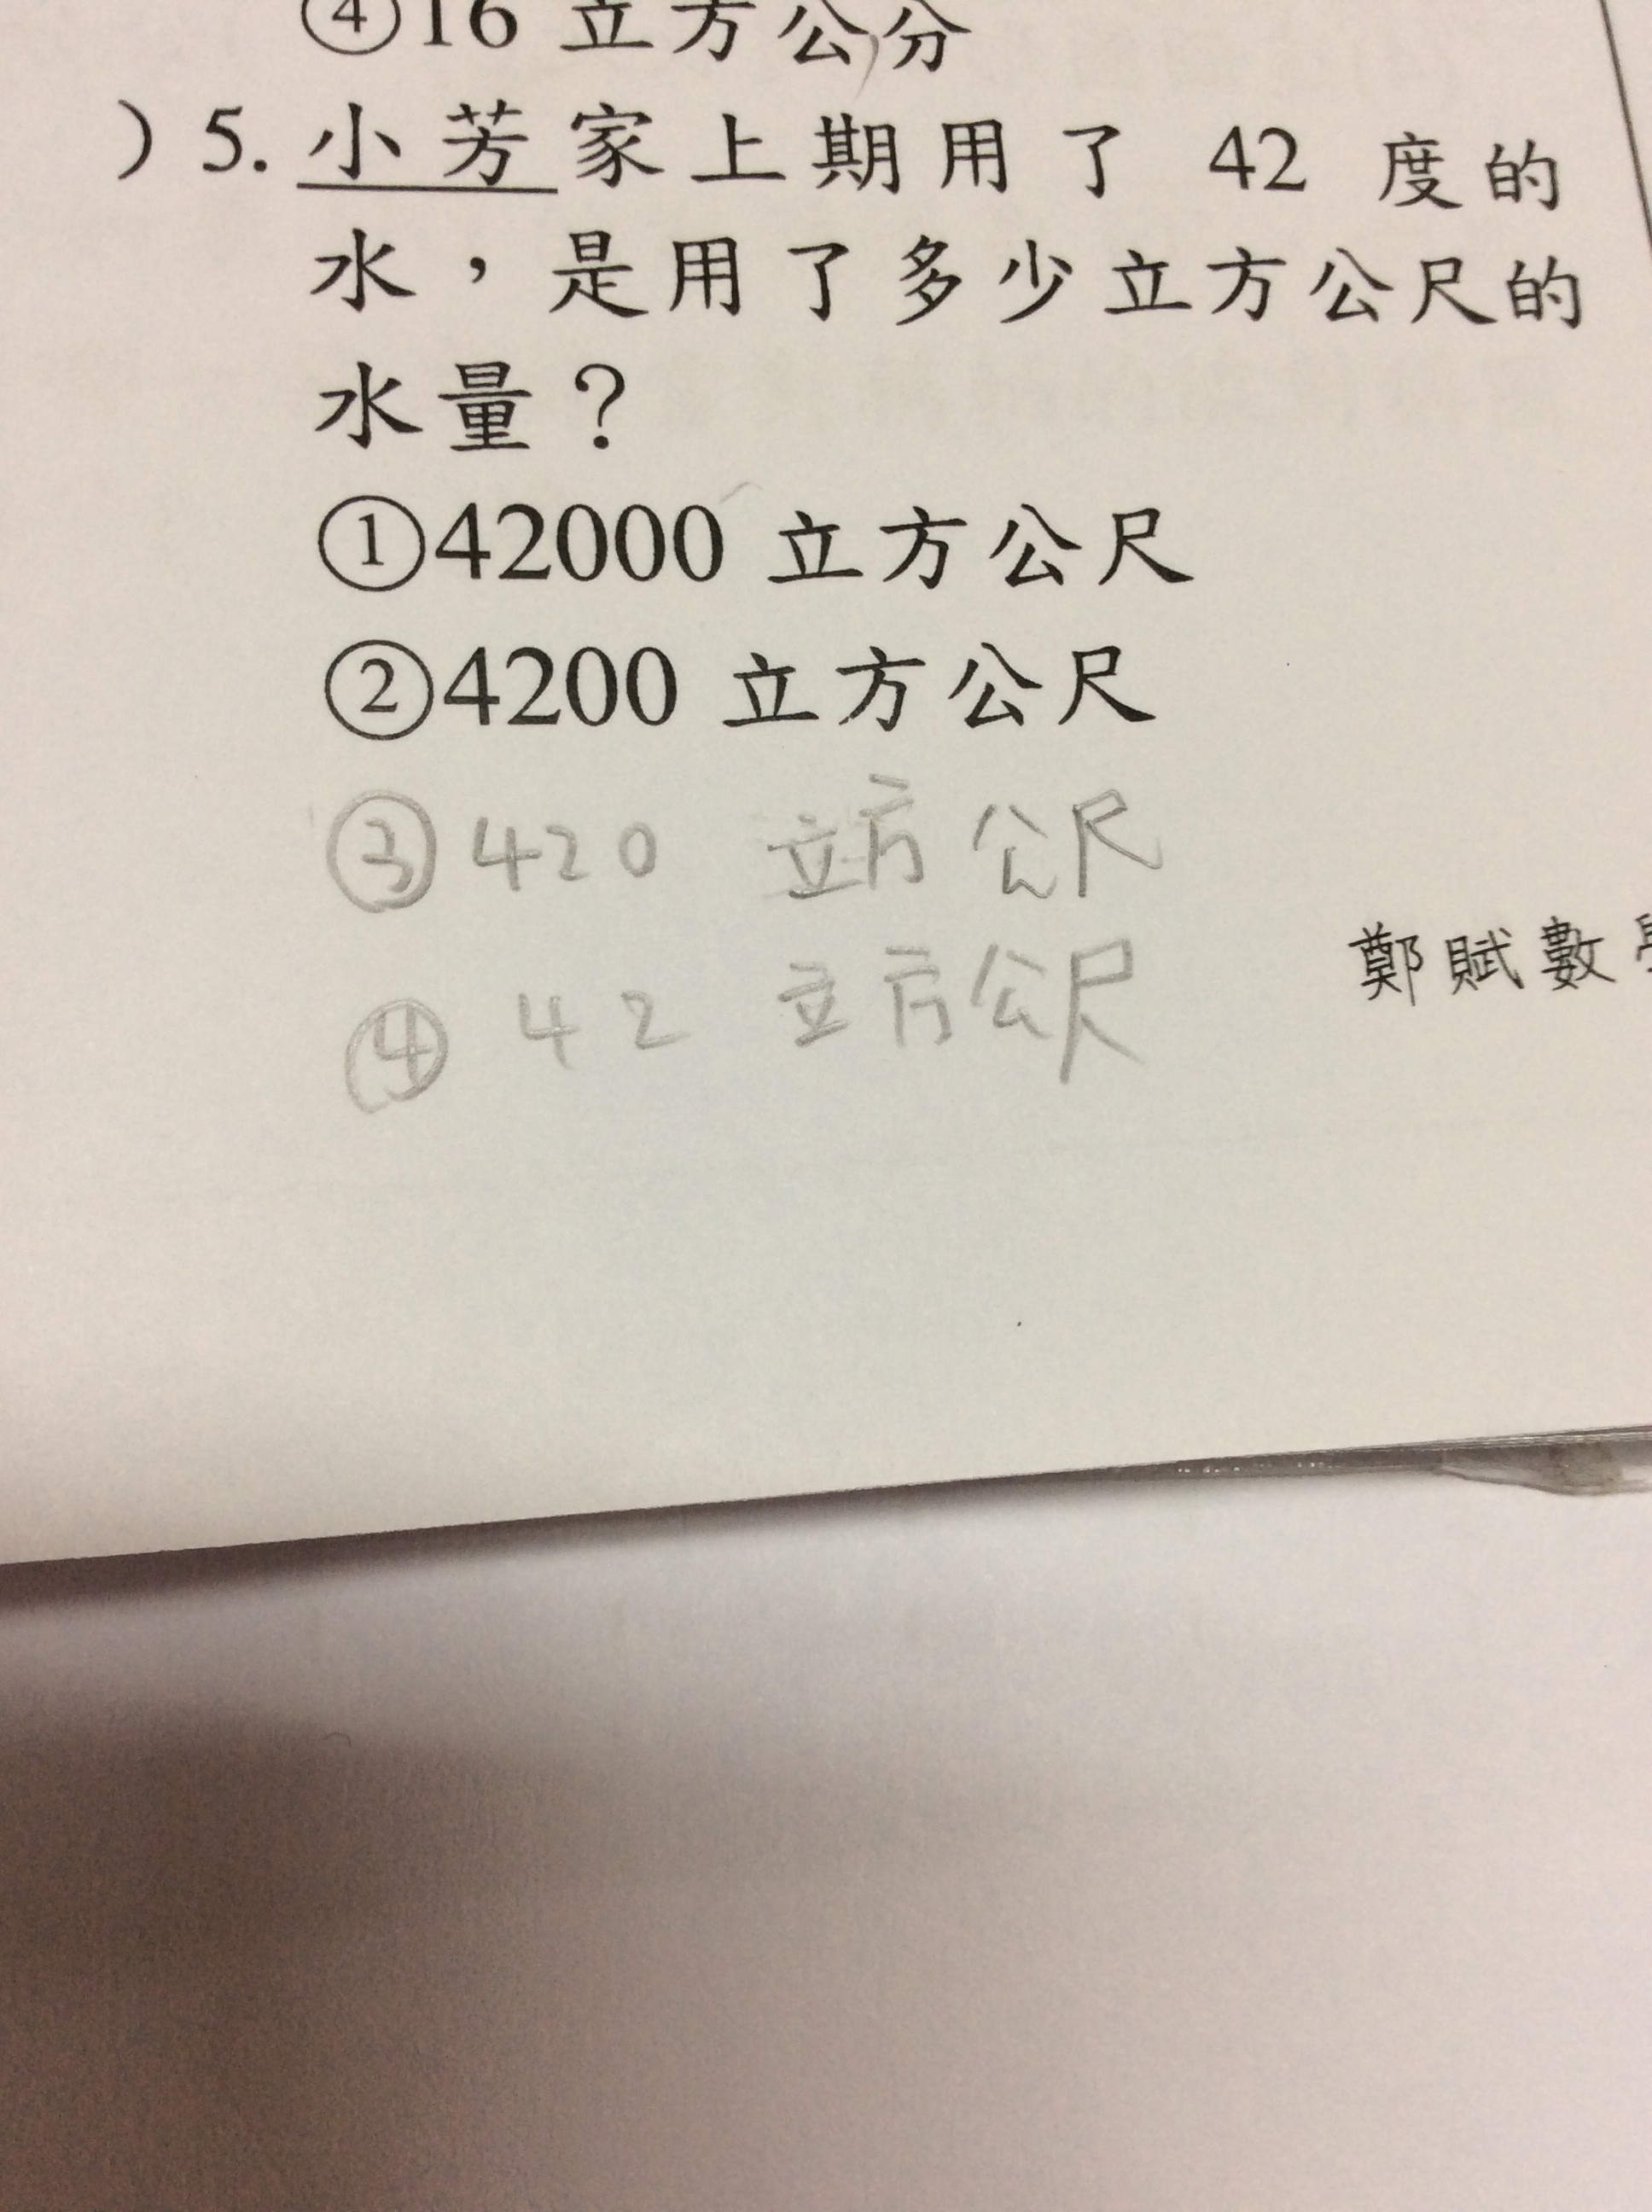 ④16 立方公分
）5. 小芳家上期用了 42 度的
水，是用了多少立方公尺的
水量？
①42000 立方公尺
②4200 立方公尺
③ 420 立方公尺
鄭賦數
④ 42 立方公尺